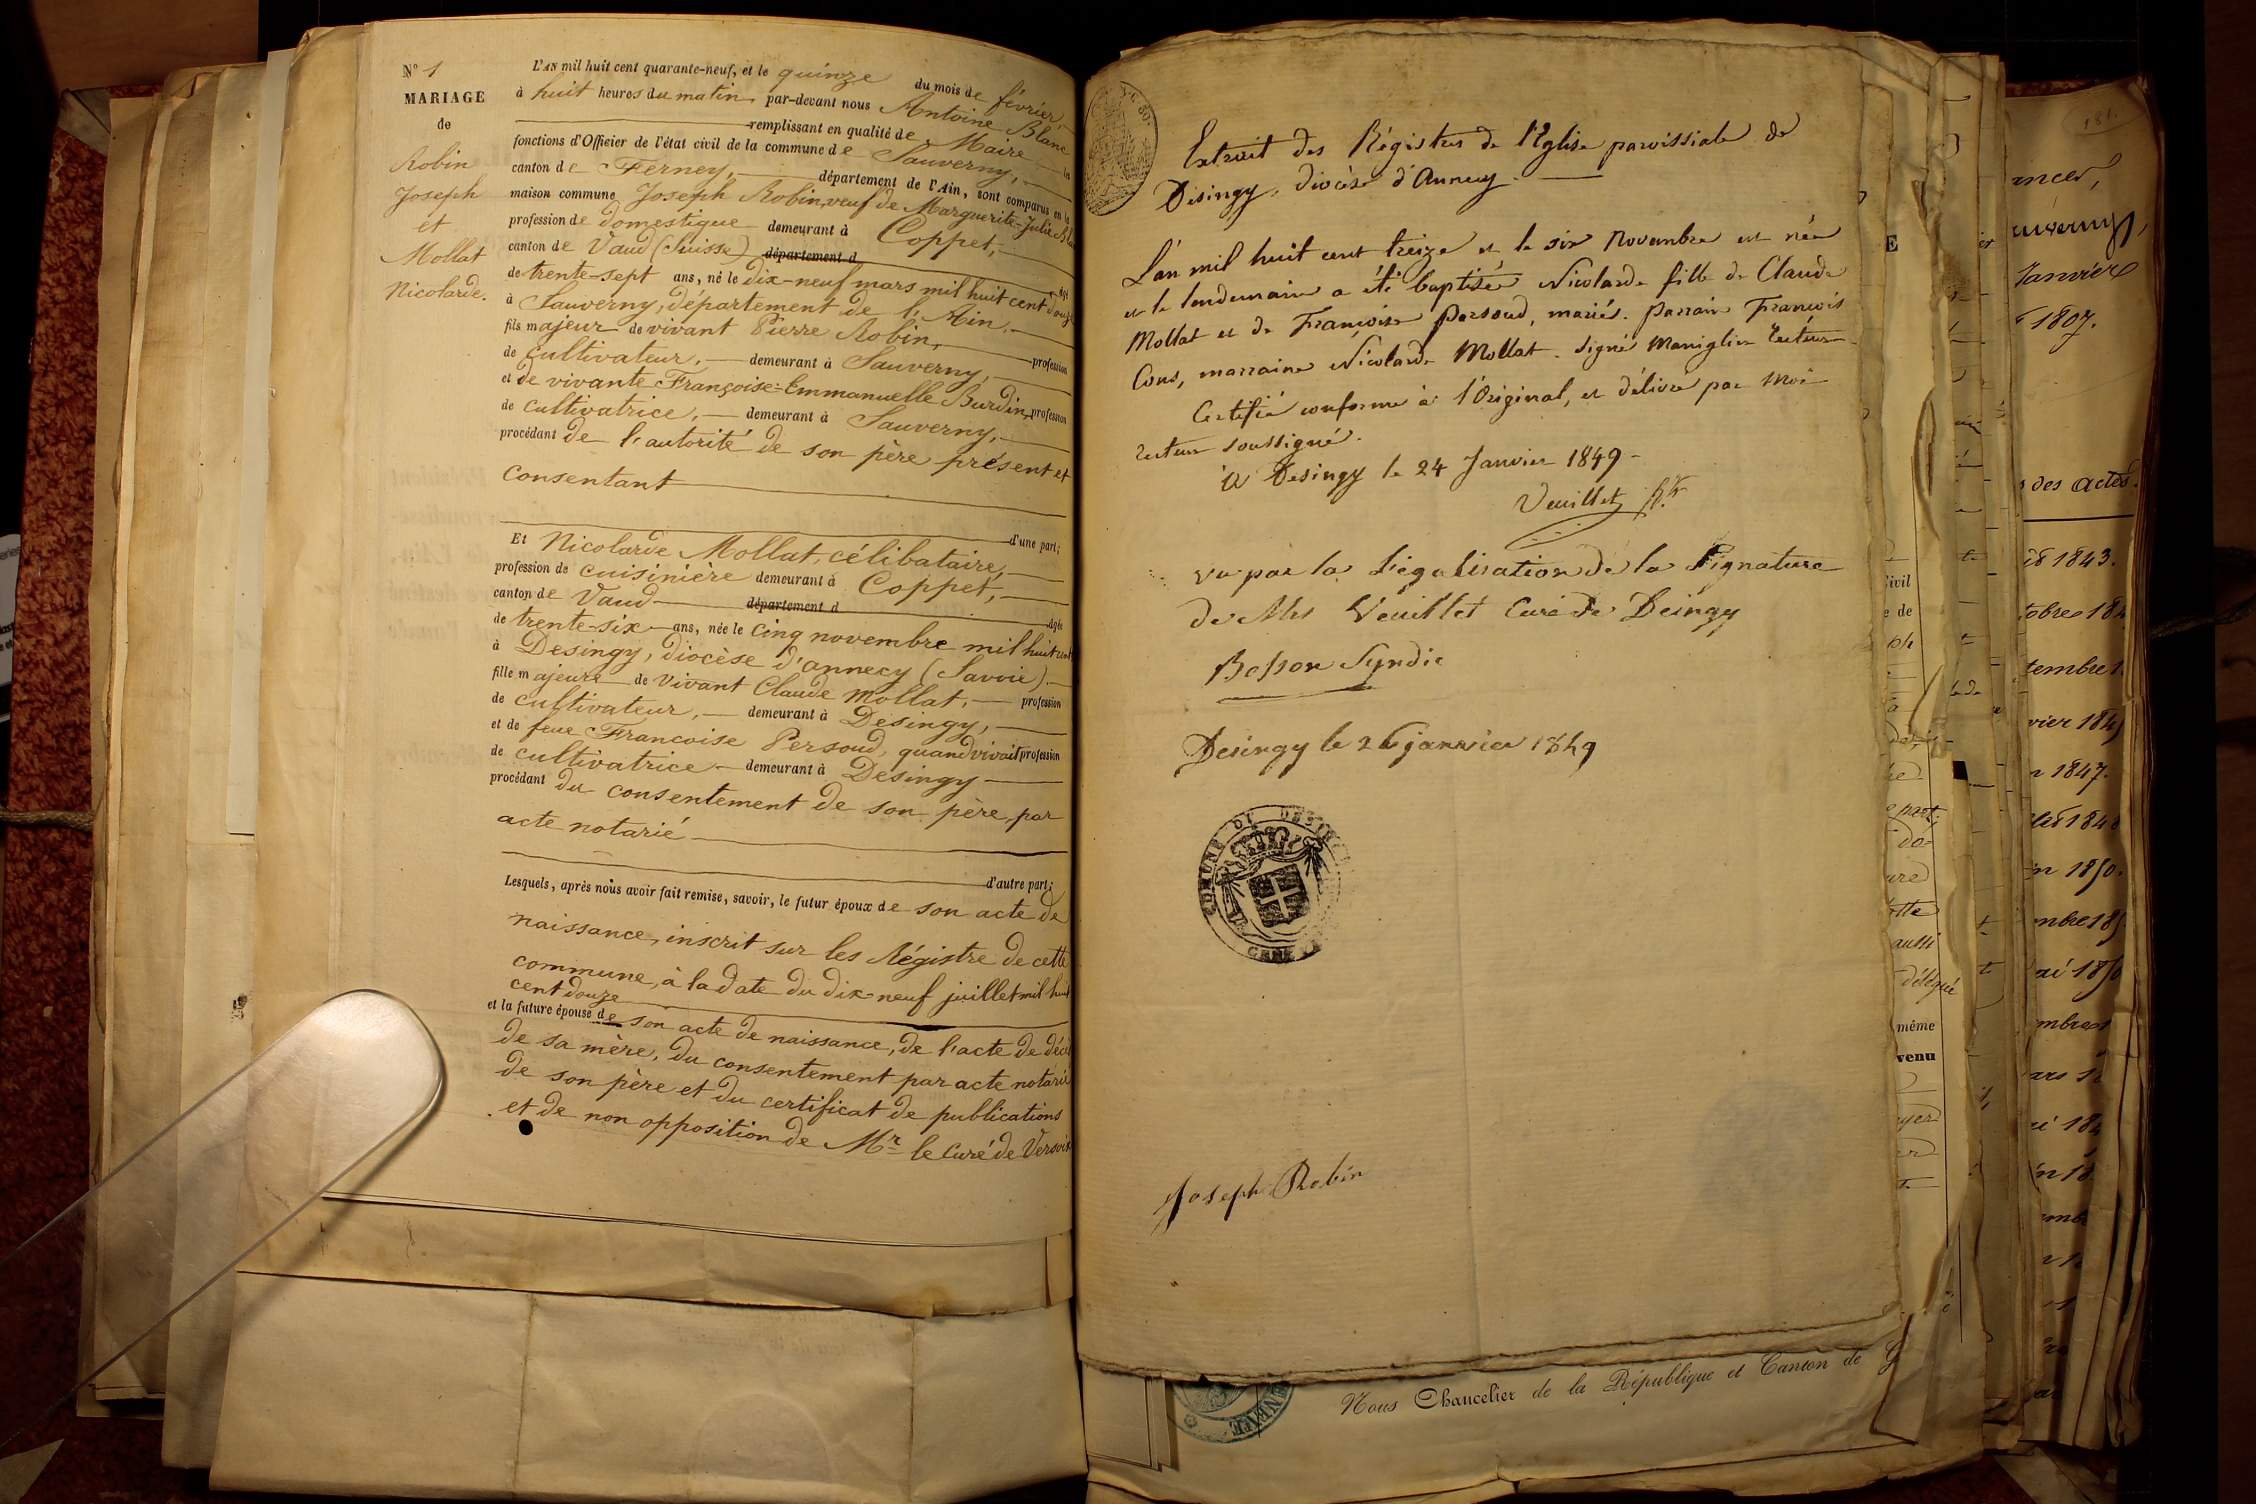 N° 1
MARIAGE
de
Robin
Joseph
et
Mollat
Nicolarde.
L'AN mil huit cent quarante-neuf, et le quinze du mois de février,
à huit heures du matin, par-devant nous Antoine Blanc
remplissant en qualité de Maire les
fonctions d'Officier de l'état civil de la commune de Sauverny,
canton de Ferney, département de l'Ain, sont comparus en la
maison commune Joseph Robin, veuf de Marguerite-Julie
profession de domestique demeurant à Coppet,
canton de Vaud (Suisse) département d
de trente-sept ans, né le dix-neuf mars mil huit cent douze
à Sauverny, département de l'Ain,
fils majeur de vivant Pierre Robin, profession
de cultivateur, demeurant à Sauverny,
et de vivante Françoise-Emmanuelle Burdin, profession
de cultivatrice, demeurant à Sauverny,
procédant de l'autorité de son père présent et
consentant
d'une part;
Et Nicolarde Mollat, célibataire,
profession de cuisinière demeurant à Coppet,
canton de Vaud département d
âgée
de trente-six ans, née le cinq novembre mil huit cent
à Desingy, diocèse d'annecy (Savoie).
fille majeure de vivant Claude Mollat, profession
de cultivateur, demeurant à Desingy,
et de feue Francoise Persoud, quand vivait profession
de cultivatrice demeurant à Desingy
procédant du consentement de son père, par
acte notarié
d'autre part;
Lesquels, après nous avoir fait remise, savoir, le futur époux de son acte de
naissance, inscrit sur les Régistre de cette
commune, à la date du dix-neuf juillet mil huit
cent douze
et la future épouse de son acte de naissance, de l'acte de décès
de sa mère, du consentement par acte notarié
de son père et du certificat de publications
et de non opposition de Mr le Curé de Versoix
Extrait des Régistres de l'Eglise paroissiale de
Désingy, diocèse d'Annecy.
L'an mil huit cent treize et le six Novembre est née
et le lendemain a été baptisée Nicolarde fille de Claude
Mollat et de Françoise Persoud, mariés. Parrain François
Cons, marraine Nicolarde Mollat. Signé Maniglier Recteur
Certifié conforme à l'Original, et délivré par Moi
recteur soussigné.
à Desingy le 24 Janvier 1849
Veuillet
Vu par la Légalisation de la Signature
de Mrs Veuillet Curé de Deingy
Bosson Syndic
Desingy le 26 janvier 1849
COMUNE DI DESINGY
Joseph Robin
Nous Chancelier de la République et Canton de G
181.
Janvier
1807.
des actes
1843.
tembre
vier 184
1847.
1850.
même
venu